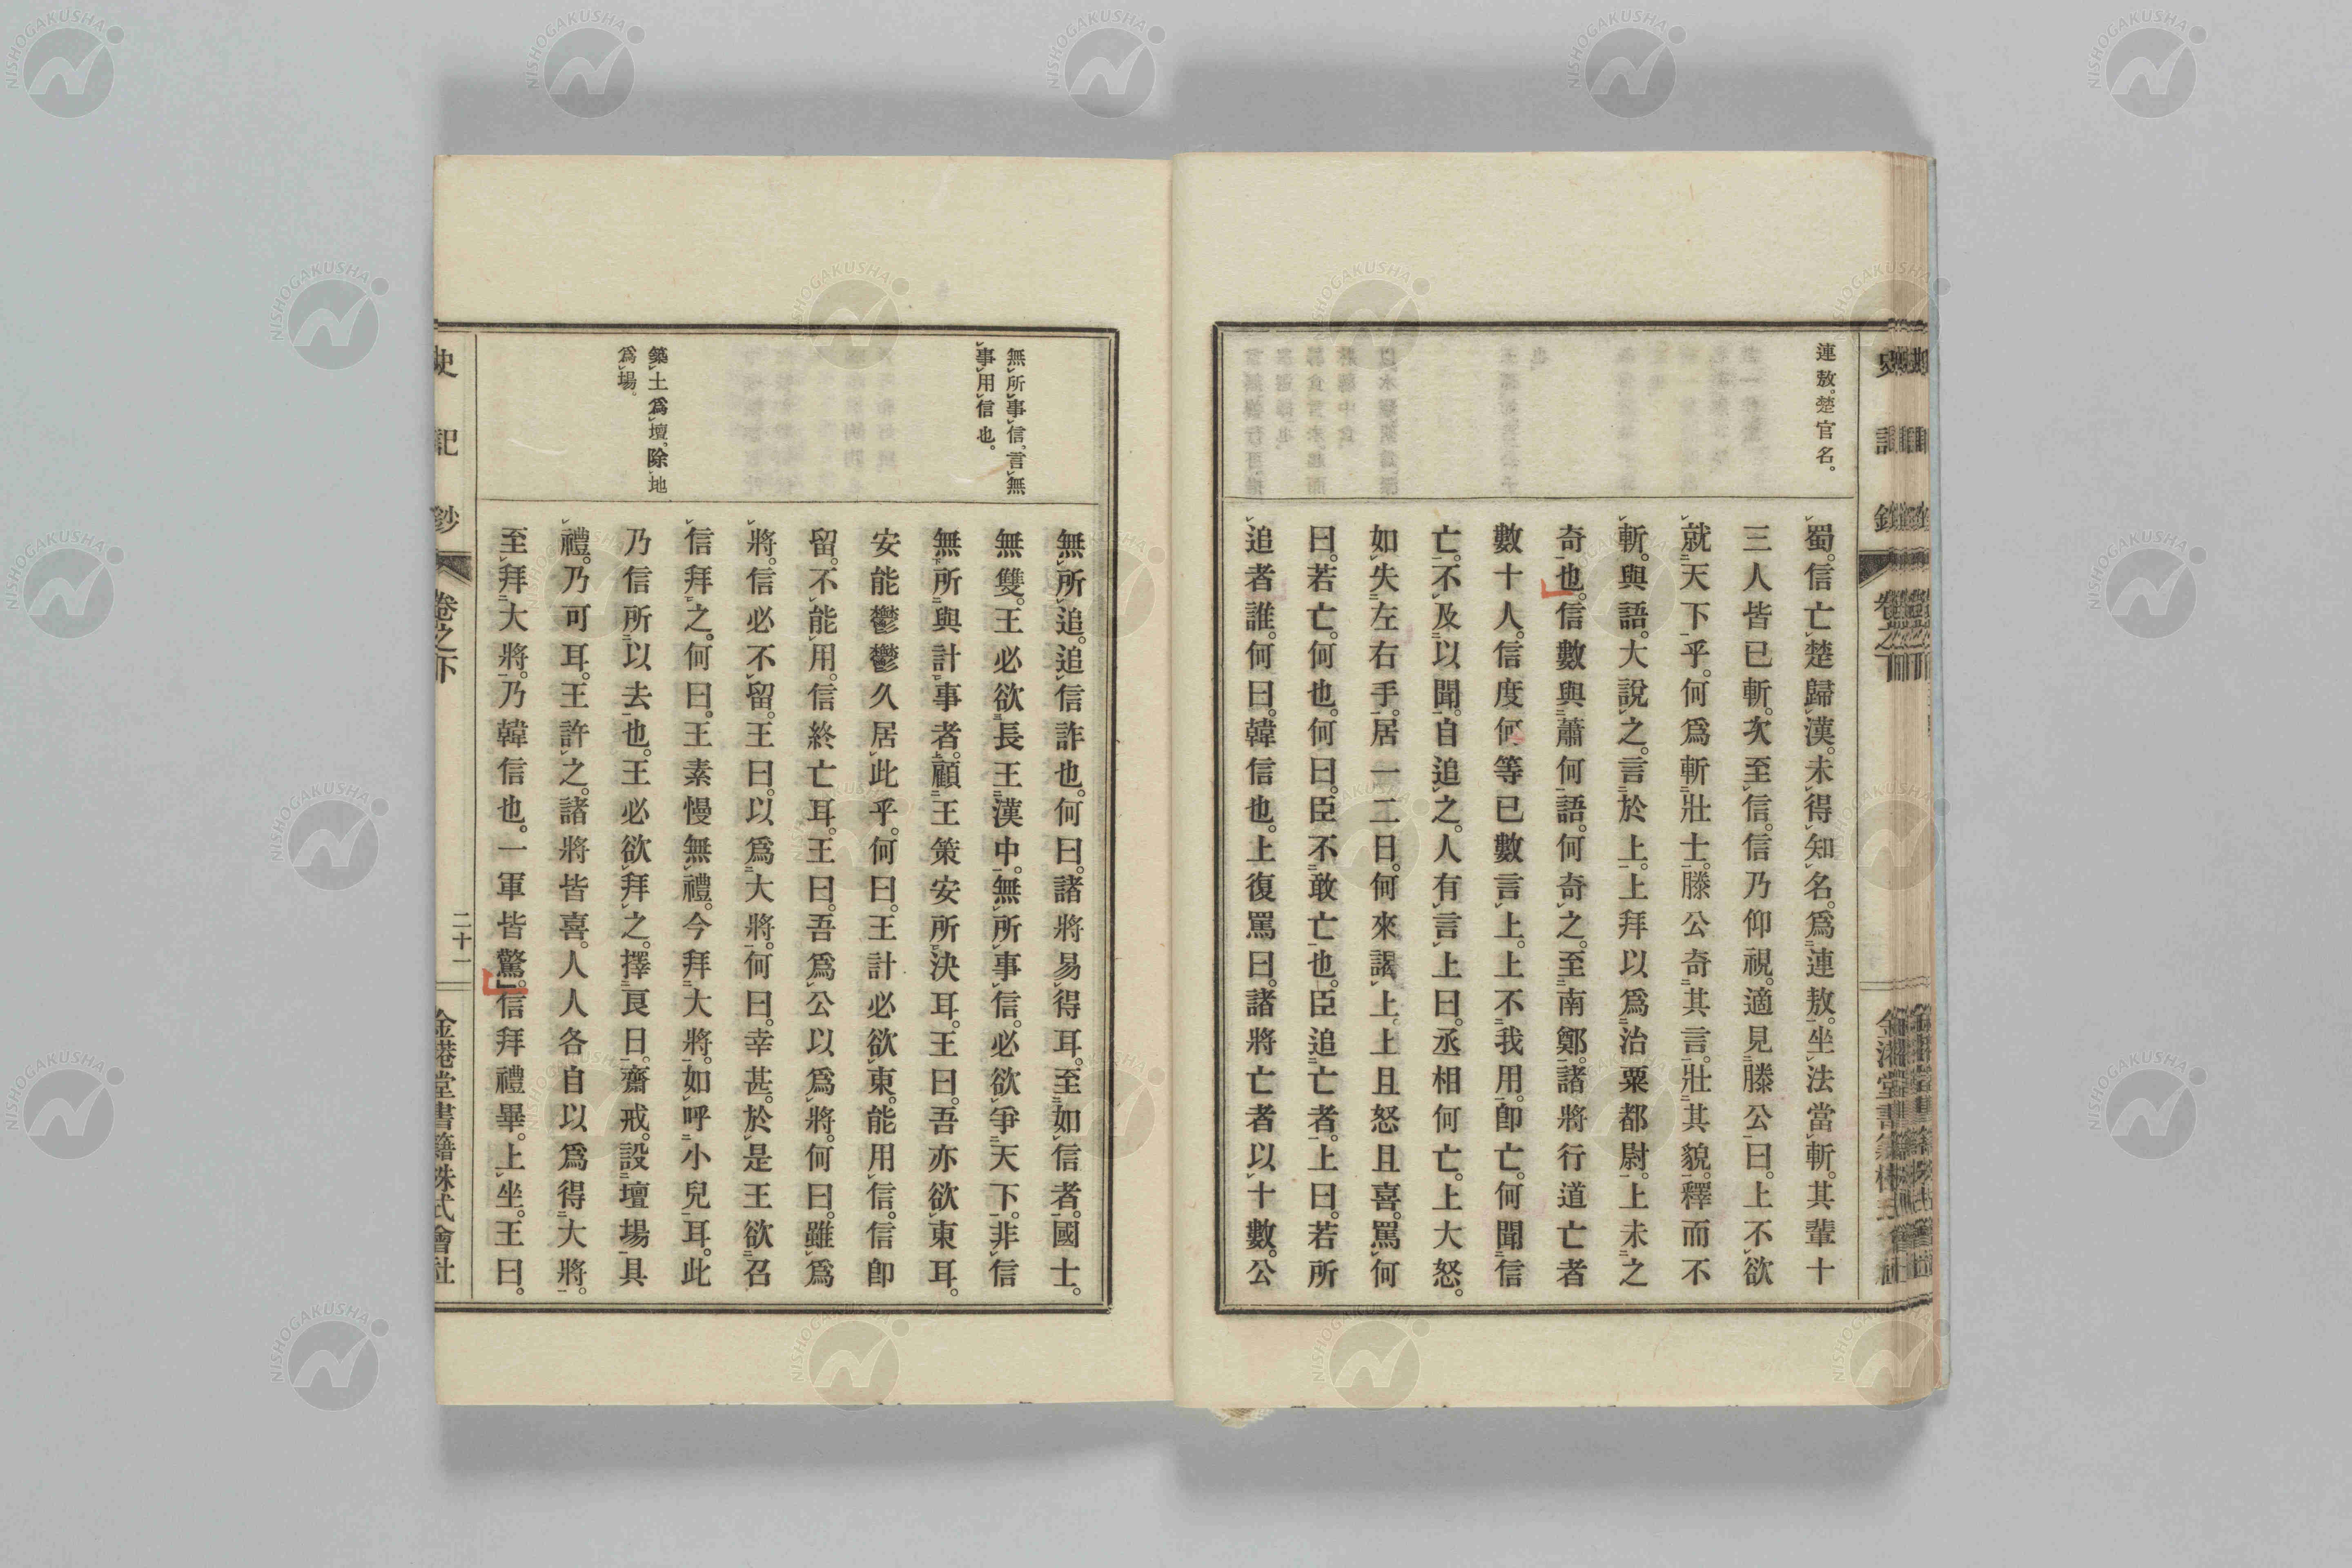 連敖。楚官名。
蜀。信亡楚歸漢。未得知名。爲連敖。坐法當斬。其輩十
三人皆已斬。次至信。信乃仰視。適見滕公曰。上不欲
就天下乎。何爲斬壯士。滕公奇其言。壯其貌。釋而不
斬。與語。大說之。言於上。上拜以爲治粟都尉。上未之
奇也。信數與蕭何語。何奇之。至南鄭。諸將行道亡者
數十人。信度何等已數言上。上不我用。卽亡。何聞信
亡。不及以聞。自追之。人有言上曰。丞相何亡。上大怒。
如失左右手。居一二日。何來謁上。上且怒且喜。罵何
曰。若亡。何也。何曰。臣不敢亡也。臣追亡者。上曰。若所
追者誰。何曰。韓信也。上復罵曰。諸將亡者以十數。公
無所事信。言無
事用信也。
築土爲壇。除地
爲場。
無所追。追信詐也。何曰。諸將易得耳。至如信者。國士。
無雙。王必欲長王漢中。無所事信。必欲爭天下。非信
無所與計事者。顧王策安所決耳。王曰。吾亦欲東耳。
安能鬱鬱久居此乎。何曰。王計必欲東。能用信。信卽
留。不能用。信終亡耳。王曰。吾爲公以爲將。何曰。雖爲
將。信必不留。王曰。以爲大將。何曰。幸甚。於是王欲召
信拜之。何曰。王素慢無禮。今拜大將。如呼小兒耳。此
乃信所以去也。王必欲拜之。擇良日。齋戒。設壇場具
禮。乃可耳。王許之。諸將皆喜。人人各自以爲得大將。
至拜大將。乃韓信也。一軍皆驚。」信拜禮畢。上坐。王曰。
史記鈔 卷之下 二十一 金港堂書籍株式會社